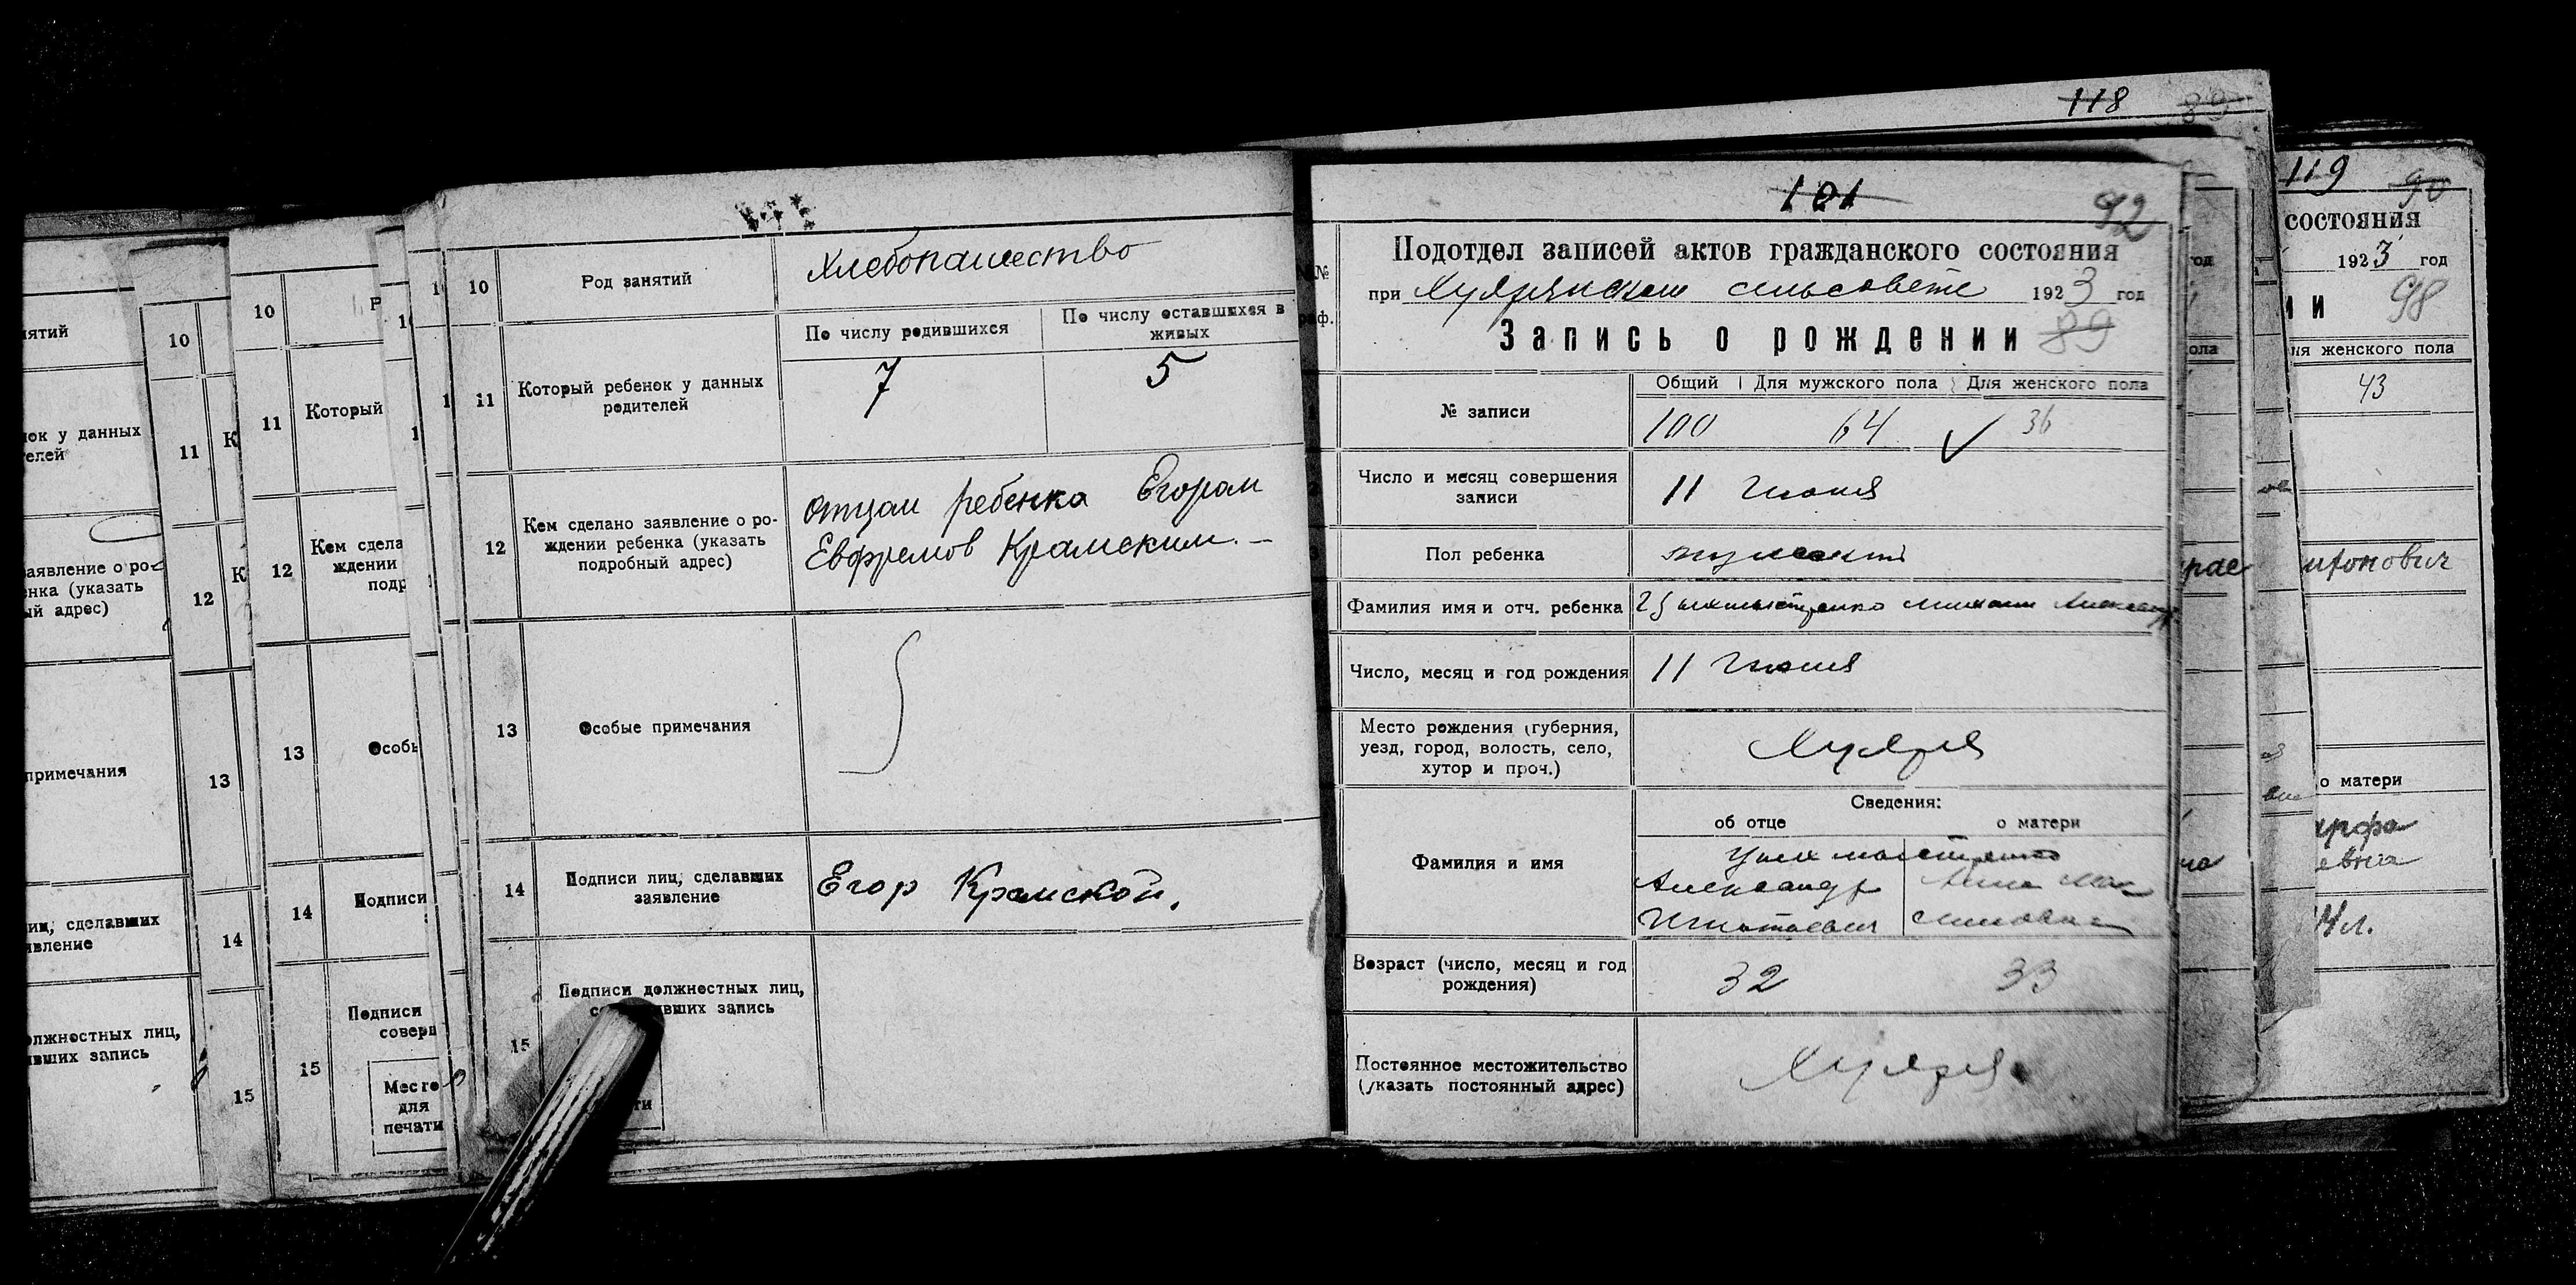 ятий
ок у данных
телей
заявление о ро-
енка (указать
ый адрес)
примечания
иц, сделавших
явление
олжностных лиц,
ивших запись
10
11
К
12
К
13
14
15
10
Р
11
Который
12
Кем сдела
ждении
подр
13
Особ
14
Подписи
15
Подписи
соверш
Место
для
печати
10
Род занятий
Хлебопашество
11
Который ребенок у данных
родителей
По числу родившихся
По числу оставшихся в
живых
7
5
12
Кем сделано заявление о ро-
ждении ребенка (указать
подробный адрес)
отцом ребенка Егором
Евфремов Крамским. —
13
Особые примечания
14
Подписи лиц, сделавших
заявление
Егор Крамской.
15
Подписи должностных лиц,
вших запись
101
92
Подотдел записей актов гражданского состояния
при сельсовете 1923 год
Запись о рождении 89
№ записи
Общий Для мужского пола Для женского пола
100 64 36
Число и месяц совершения
записи
11 Июня
Пол ребенка
мужской
Фамилия имя и отч. ребенка
Михаил
Число, месяц и год рождения
11 Июня
Место рождения (губерния,
уезд, город, волость, село,
хутор и проч.)
Сведения:
об отце
о матери
Фамилия и имя
Александр
Анна Мак
Игнатьевич
симовна
Возраст (число, месяц и год
рождения)
32
33
Постоянное местожительство
(указать постоянный адрес)
118
89
119
90
состояния
1923 год
98
ля женского пола
43
о матери